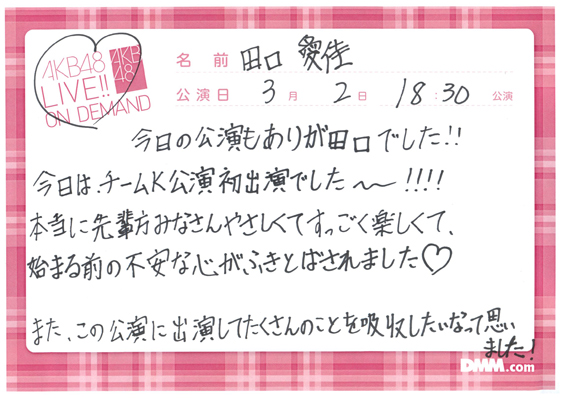 AKB48
LIVE!!
ON DEMAND
AKB
48
名前 田口 愛佳
公演日 3月 2日 18:30 公演
今日の公演もありが田口でした!!
今日は、チームK公演初出演でした〜!!!!
本当に先輩方みなさんやさしくてすっごく楽しくて、
始まる前の不安な心がふきとばされました♡
また、この公演に出演してたくさんのことを吸収したいなって思い
ました!
DMM.com